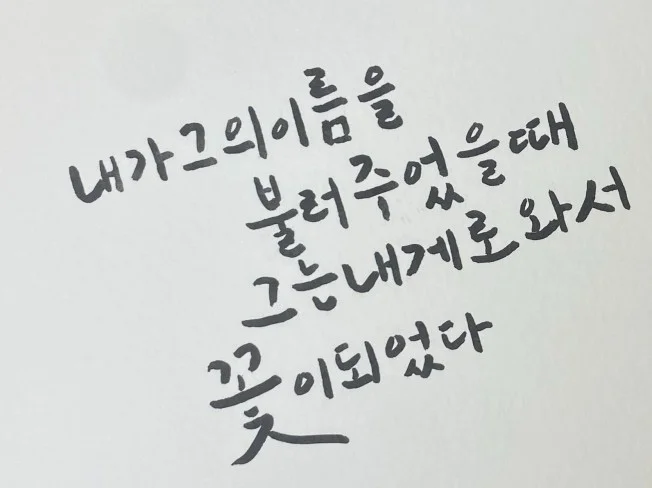 내가 그의 이름을
불러 주었을 때
그는 내게로 와서
꽃이 되었다